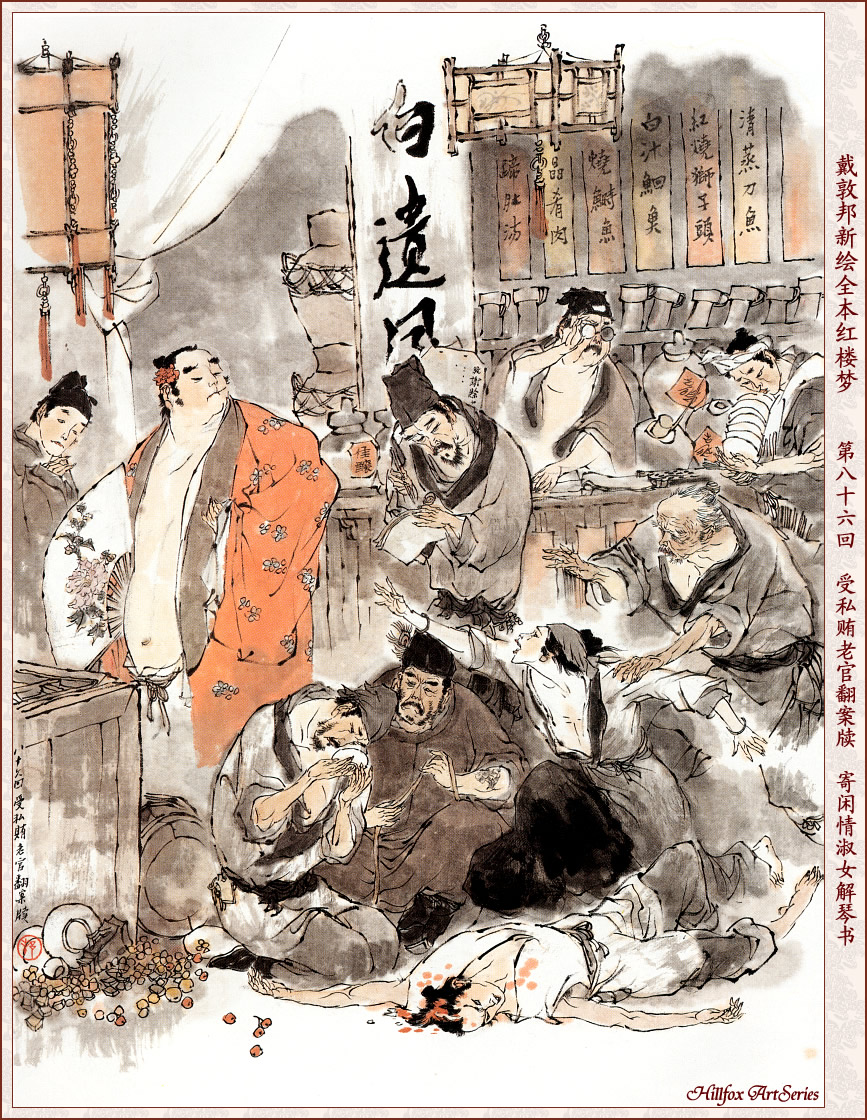 戴敦邦新绘全本红楼梦 第八十六回 受私贿老官翻案牍 寄闲情淑女解琴书
清蒸刀鱼
紅燒獅子頭
白汁鮰魚
燒鰣魚
品肴肉
蹄肚湯
遺風
佳釀
八十六回 受私贿老官翻案牘
Hillfox ArtSeries